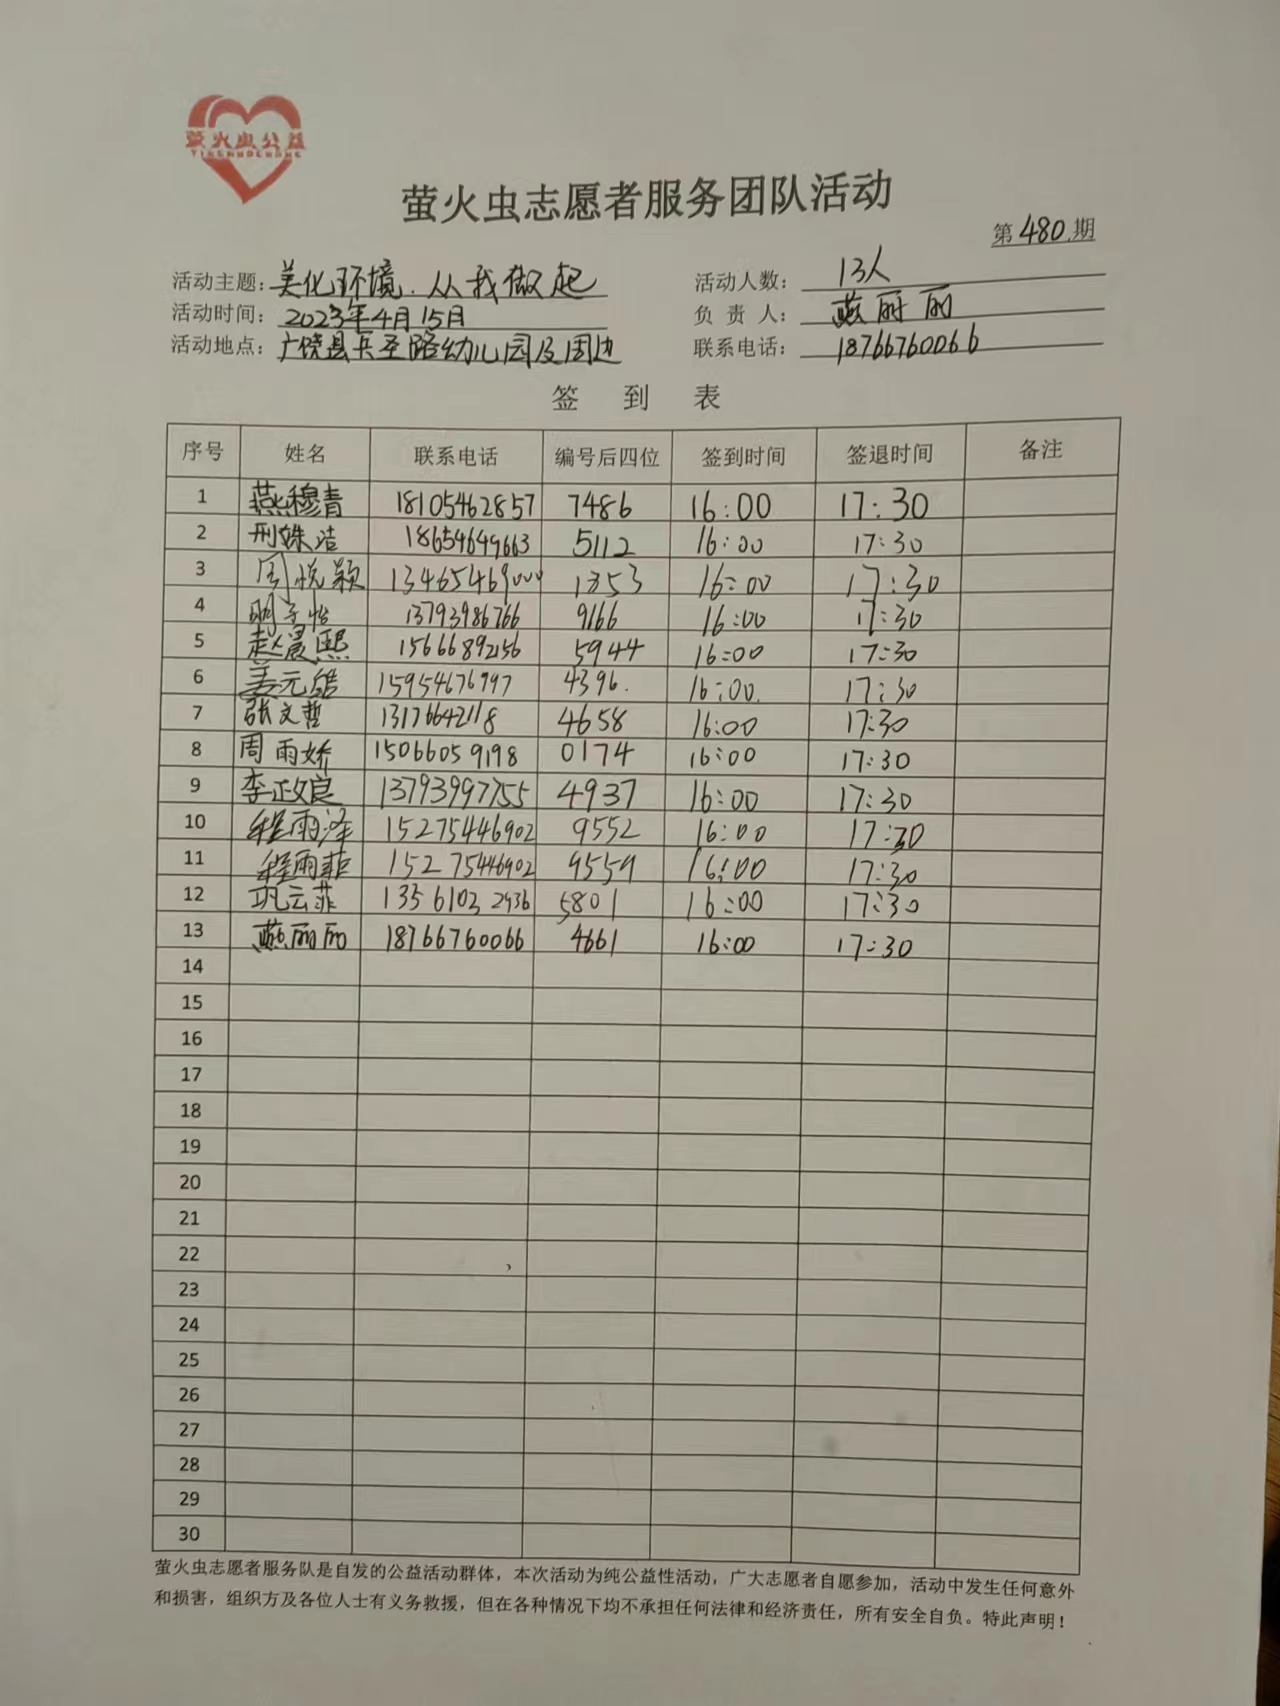 萤火虫公益
YINGHUOCHONG
萤火虫志愿者服务团队活动
第480.期
活动主题：美化环境.从我做起 活动人数：13人
活动时间：2023年4月15日 负责人：燕丽丽
活动地点：广饶县兵圣路幼儿园及周边 联系电话：18766760066
签到表
序号 姓名 联系电话 编号后四位 签到时间 签退时间 备注
1 燕穆青 18105462857 7486 16:00 17:30
2 邢姝洁 18654649663 5112 16:00 17:30
3 周悦颖 13465469000 1353 16:00 17:30
4 明子怡 13793986766 9166 16:00 17:30
5 赵晨熙 15666892156 5944 16:00 17:30
6 姜元皓 15954676997 4396. 16:00. 17:30
7 张文哲 13176642118 4658 16:00 17:30
8 周雨娇 15066059198 0174 16:00 17:30
9 李政良 13793997755 4937 16:00 17:30
10 程雨泽 15275446902 9552 16:00 17:30
11 程雨菲 15275446902 9559 16:00 17:30
12 巩云菲 13561032936 5801 16:00 17:30
13 燕丽丽 18766760066 4661 16:00 17:30
14
15
16
17
18
19
20
21
22
23
24
25
26
27
28
29
30
萤火虫志愿者服务队是自发的公益活动群体，本次活动为纯公益性活动，广大志愿者自愿参加，活动中发生任何意外
和损害，组织方及各位人士有义务救援，但在各种情况下均不承担任何法律和经济责任，所有安全自负。特此声明！